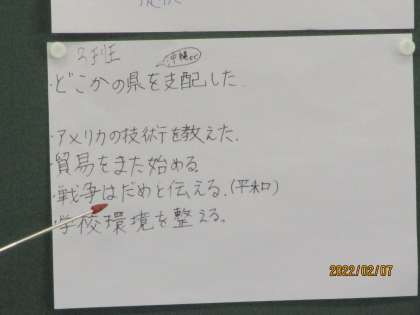 3班
沖縄など
・どこかの県を支配した。
・アメリカの技術を教えた.
・貿易をまた始める
・戦争はだめと伝える.(平和)
・学校環境を整える。
2022/02/07